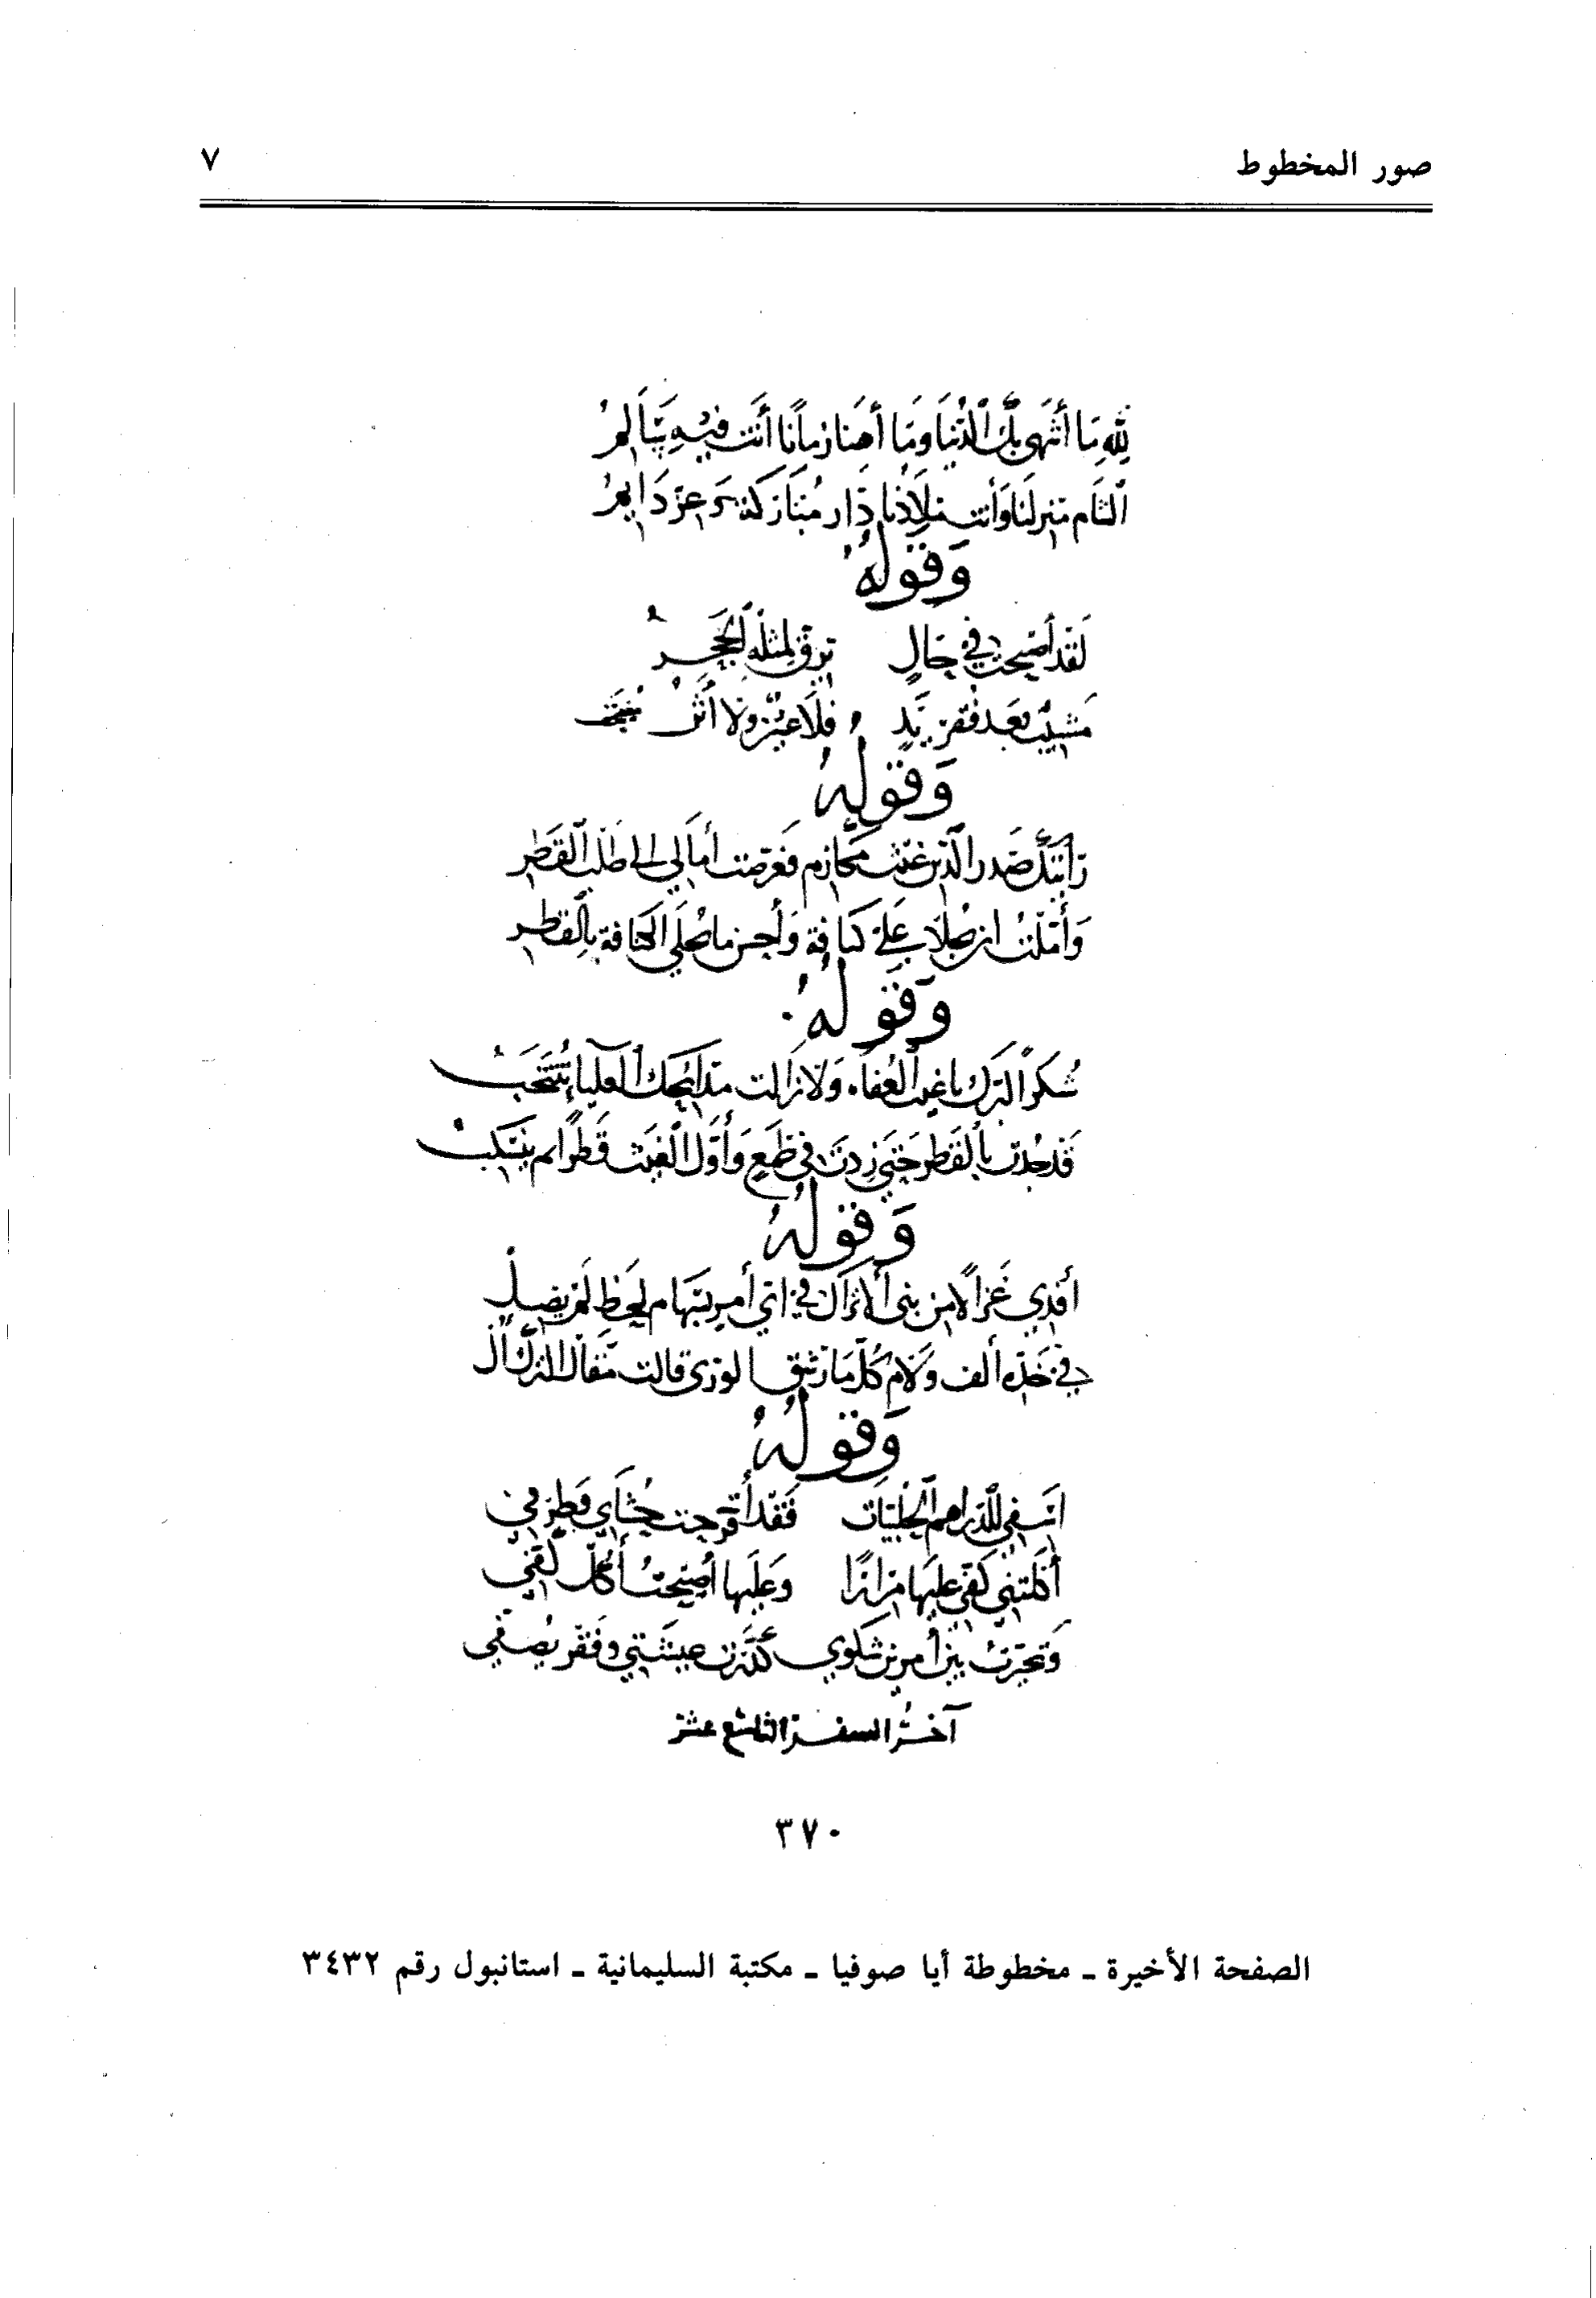 صور المخطوط ٧
لِلّهِ مَا أَشْهَى بِكَ الدُّنْيَا وَمَا أَهْنَا زمَانًا أنْتَ فيْهِ يَا سَالِمُ
الشَّام مَنزلُنا وَأنت مَلاذُنا دَار مُبَاركة وَعزّ دَايمُ
وَقَولُهُ
لَقَد أَصْبَحتُ في حَالٍ يَرقُّ لمثلهِ الحَجَرُ
مَشيْبٌ بَعد فَقر يَدٍ فَلاَ عَيْنٌ ولا أَثَرُ
وَقَولُهُ
رَأيتكَ صَدر الدّين غَيْث مكَارم فعَرّضت آمَالي إلى طَلَب القَطْر
وَأمّلتُ ان تحلَا عَليّ كنَافة وَأحسن ما تُحلَى الكنافة بالقَطْر
وَقَولُهُ
شُكرًا لبرّك يا غيث العُفاه ولا زَالت مَدايحك العَليا تُنْتَخبُ
قَد جُدت بالقَطر حَتى زدتَ في طَمَعٍ وَأوّل الغَيث قَطرٌ ثم يَنْسَكبُ
وَقَولُهُ
أفدي غَزالًا من بني الأتراك في أمر يسَهام لحظ لم يصل
في خَدّه ألف ولَام كُلّما رشق الورى قالت مَقال الترك أل
وَقَولُهُ
أسَفي للدّراهم الحَلَبيّات فَقَد أقرحت حشَاي وطَرفي
أذهلتني كَفي عَليهَا مِرارًا وَعَليهَا أصْبَحتُ آكُل كَفّي
وَتحيّرتُ بَين أمرين شكوى كَدّرت عيشتي وفَقر يُصَفّي
آخرُ السفر التاسع عشر
٣٧٠
الصفحة الأخيرة ـ مخطوطة أيا صوفيا ـ مكتبة السليمانية ـ استانبول رقم ٣٤٣٢